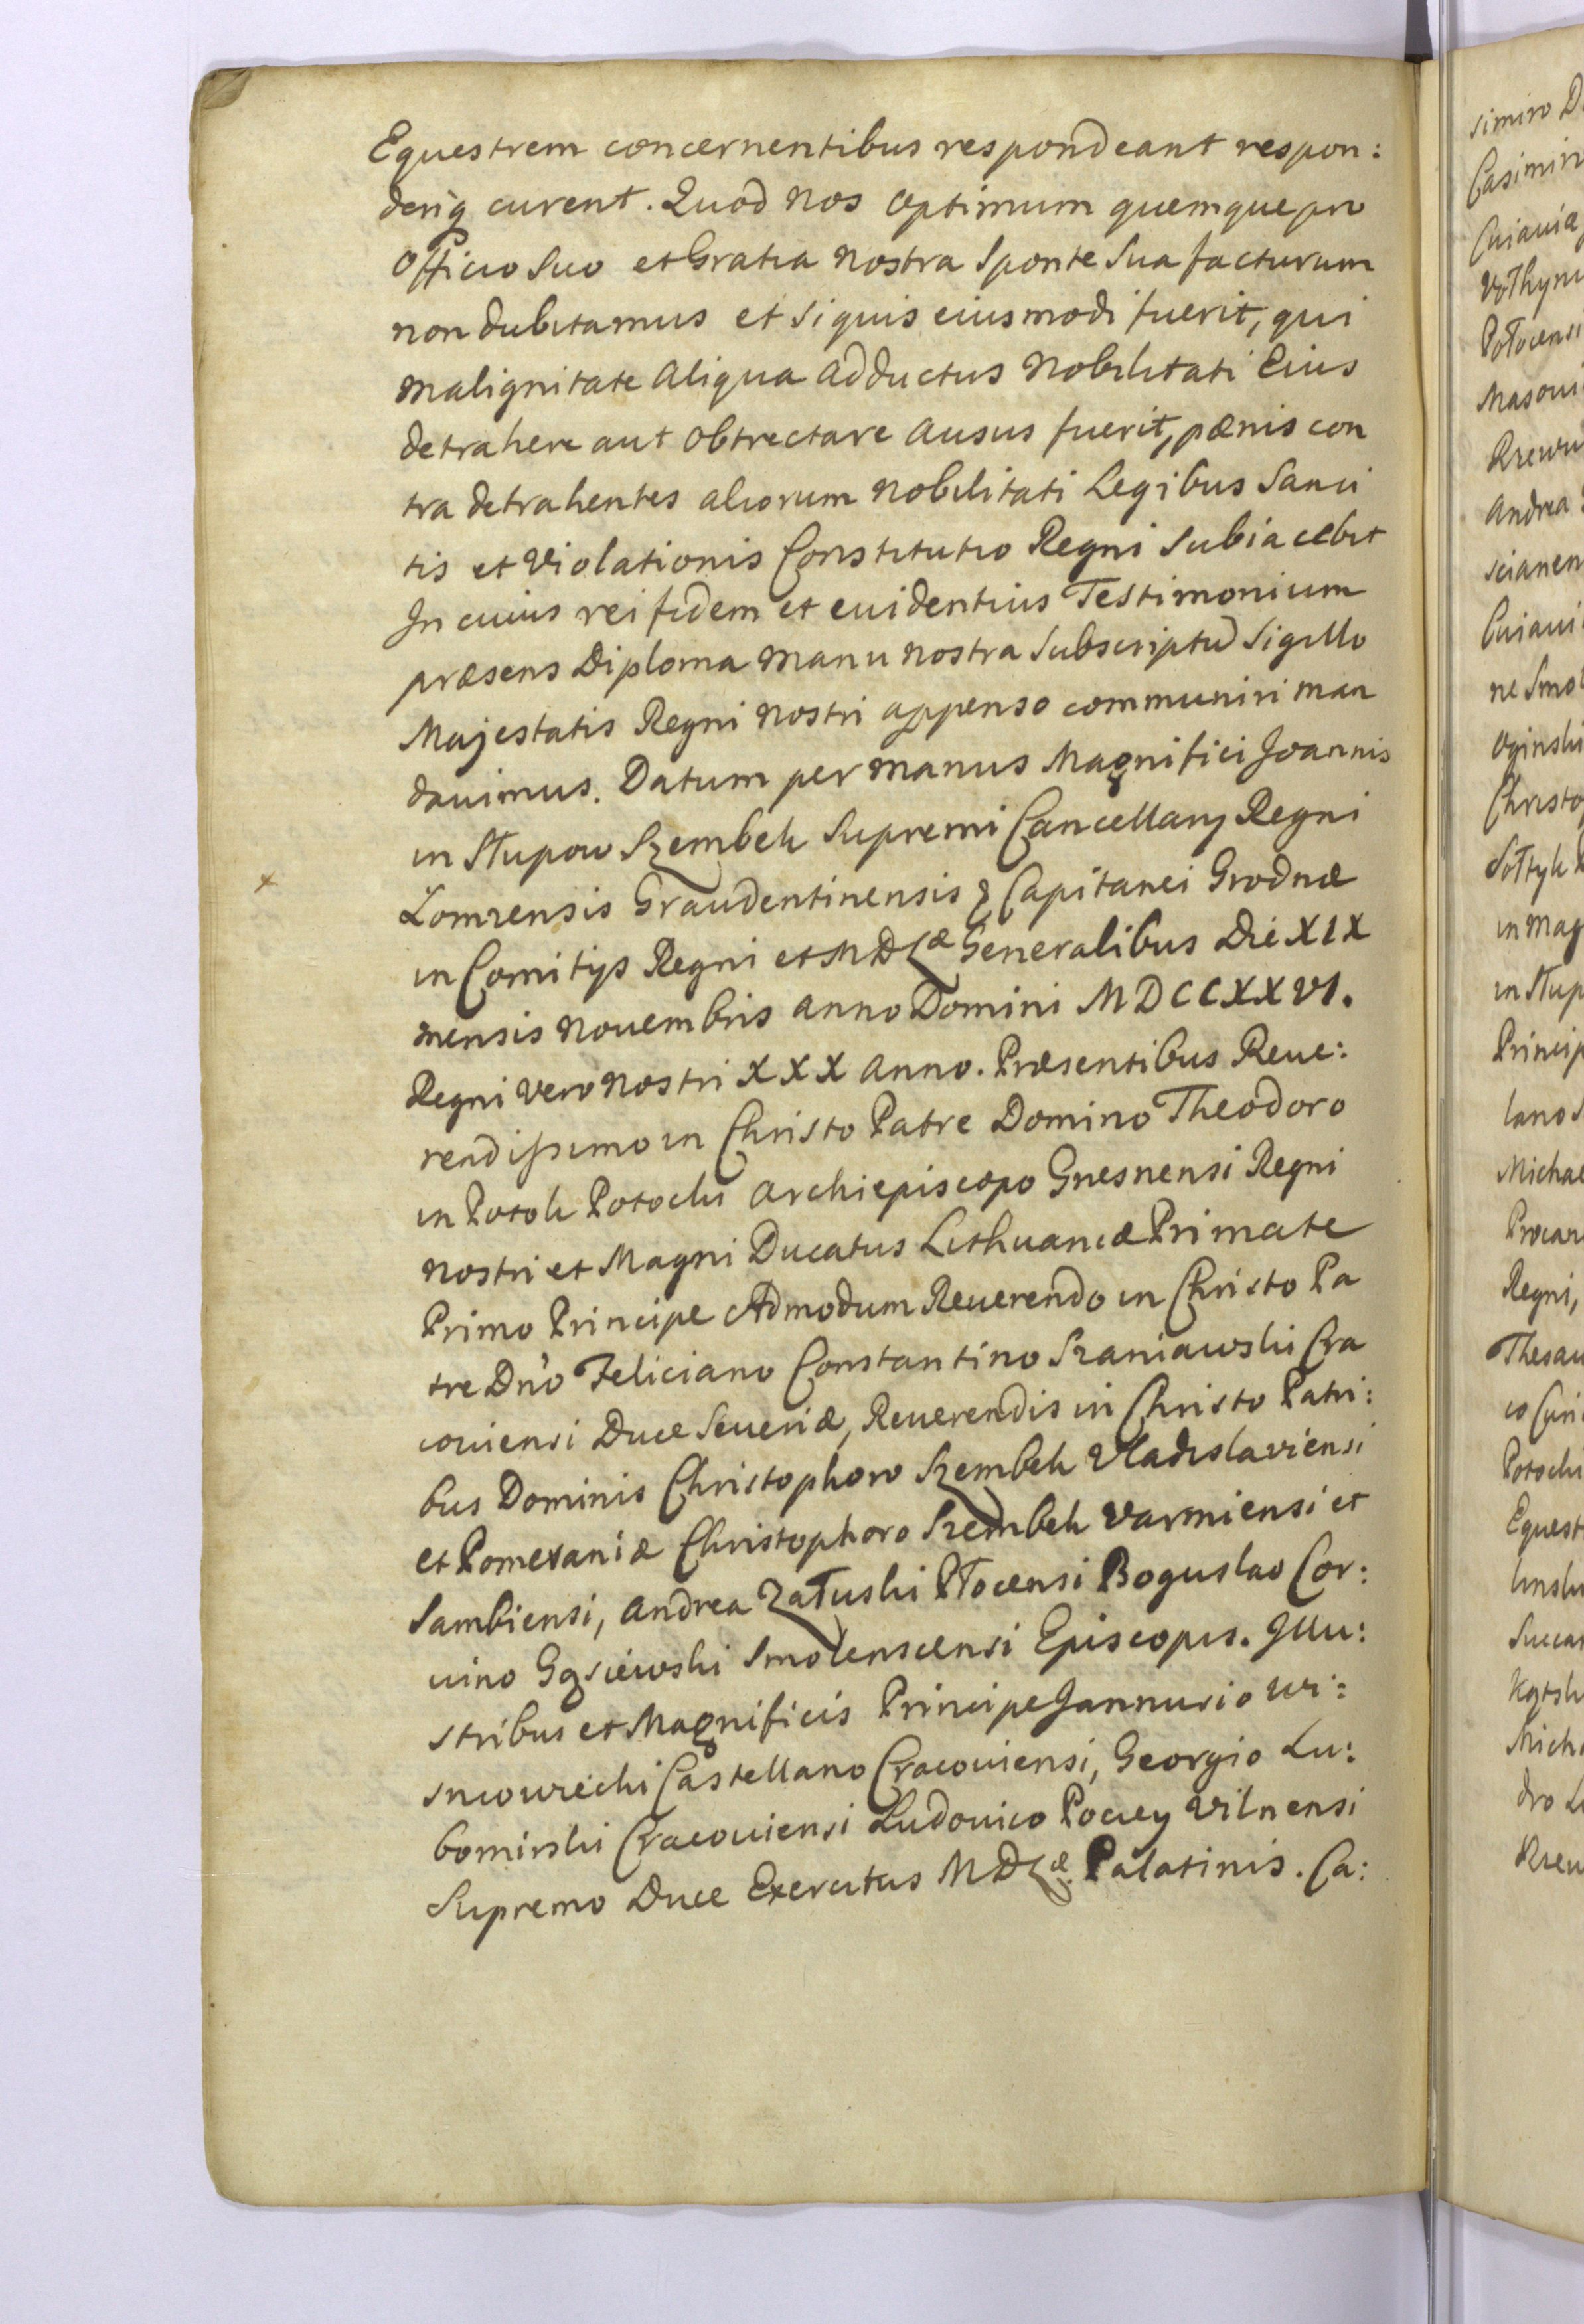 Equestrem concernentibus respondeant respon:
deriq curent. Quod nos optimum quemque pro
Officio Suo et Gratia nostra Sponte Sua facturum
non dubitamus et Siquis eiusmodi fuerit, qui
malignitate Aliqua Adductus Nobilitati Eius
detrahere aut Obtrectare Ausus fuerit, pænis con
tra detrahentes aliorum Nobilitati Legibus Sanci
tis et Violationis Constitutio Regni Subiacebit
In cuius rei fidem et euidentius Testimonium
præsens Diploma manu nostra Subscriptũ Sigillo
Majestatis Regni nostri appenso communiri man
dauimus. Datum per manus Magnifici Joannis
in Słupow Szembek Supremi Cancellarij Regni
Łomzensis Graudentinensis & Capitanei Grodnæ
in Comitijs Regni et MDLæ Generalibus Die XIX
mensis Nouembris Anno Domini MDCCXXVI.
Regni vero Nostri XXX Anno. Præsentibus Reue:
rendissimo in Christo Patre Domino Theodoro
in Potok Potocki Archiepiscopo Gnesnensi Regni
Nostri et Magni Ducatus Lithuaniæ Primate
Primo Principe Admodum Reuerendo in Christo Pa
tre Dño Feliciano Constantino Szaniawski Cra
couiensi Duce Seueriæ, Reuerendis in Christo Patri:
bus Dominis Christophoro Szembek Vladislaviensi
et Pomeraniæ Christophoro Szembek Varmiensi et
Sambiensi, Andrea Załuski Płocensi Boguslao Cor:
uino Gąsiewski Smolenscensi Episcopis. Illu:
stribus et Magnificis Principe Jannusio Wi:
sniowiecki Castellano Cracouiensi, Georgio Lu:
bomirski Cracouiensi Ludouico Pociey Vilnensi
Supremo Duce Exercitus MDLæ Palatinis. Ca: